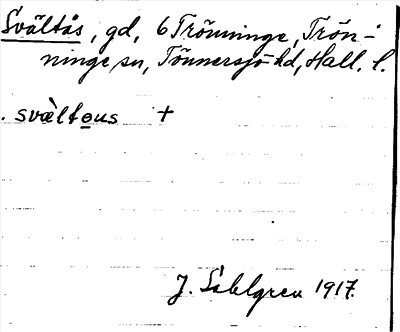 Svältås, gd, 6 Trönninge, Trön-
ninge sn, Tönnersjö hd, Hall. l.
. svæ̀lto̲us +
J. Sahlgren 1917.